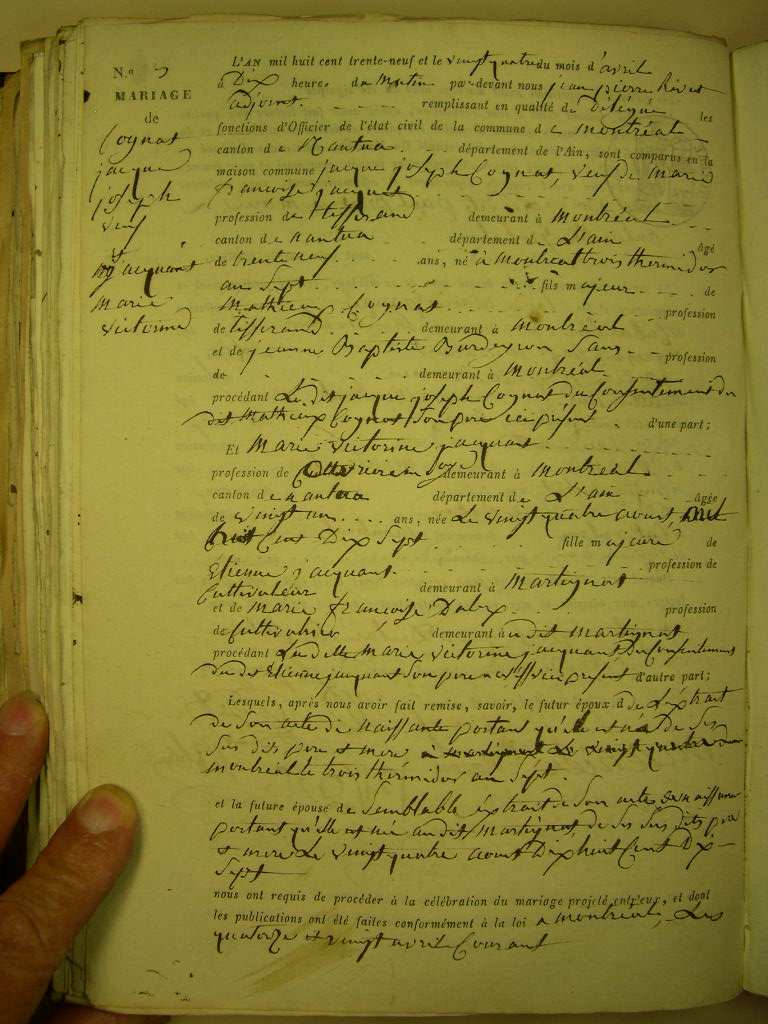 N.o
MARIAGE
de
Cognat
jacque
joseph
veuf
et
jacquant
marie
victorine
L'AN mil huit cent trente-neuf et le vingt quatre du mois d'avril
à Dix heures du Matin par-devant nous jean pierre
adjoint remplissant en qualité de Délégué les
fonctions d'Officier de l'état civil de la commune de montréal
canton de Nantua département de l'Ain, sont comparus en la
maison commune jacque joseph Cognat, veuf de Marie
francoise jacquet
profession de tisserand demeurant à montréal
canton de nantua département de L'ain âgé
de trente neuf ans, né à montréal trois thermidor
an Sept fils majeur de
Mathieu Cognat profession
de tisserand demeurant à montréal
et de jeanne Baptiste Burdeyron Sans profession
de demeurant à montréal
procédant Le dit jacque joseph Cognat du Consentement du
dit Mathieux Cognat Son père ici présent d'une part;
Et Marie victorine jacquant
profession de ouvrière en soye demeurant à montréal
canton de nantua département de L'ain âgée
de vingt un ans, née Le vingt quatre aoust, mil
huit Cent Dix Sept fille majeure de
Etienne jacquant profession de
Cultivateur demeurant à Martignat
et de Marie françoise profession
de Cultivatrice demeurant à u dit Martignat
procédant La ditte Marie victorine jacquant du Consentement
du dit Etienne jacquant Son père ici présent d'autre part;
Lesquels, après nous avoir fait remise, savoir, le futur époux d de L'éxtrait
de Son acte de naissante portant qu'il est né De Ses
Sus dits pere et mere à martignat Le vingt quatre
montréal le trois thérmidor an Sépt.
et la future épouse de Semblable éxtrait de Son acte de naissance
portant qu'elle est née au dit Martignat de Ses Sus dits pere
et mere Le vingt quatre aoust Dix huit Cent Dix-
Sept
nous ont requis de procéder à la célébration du mariage projeté entr'eux, et dont
les publications ont été faites conformément à la loi a montréal, Les
quatorze et vingt avril Courant